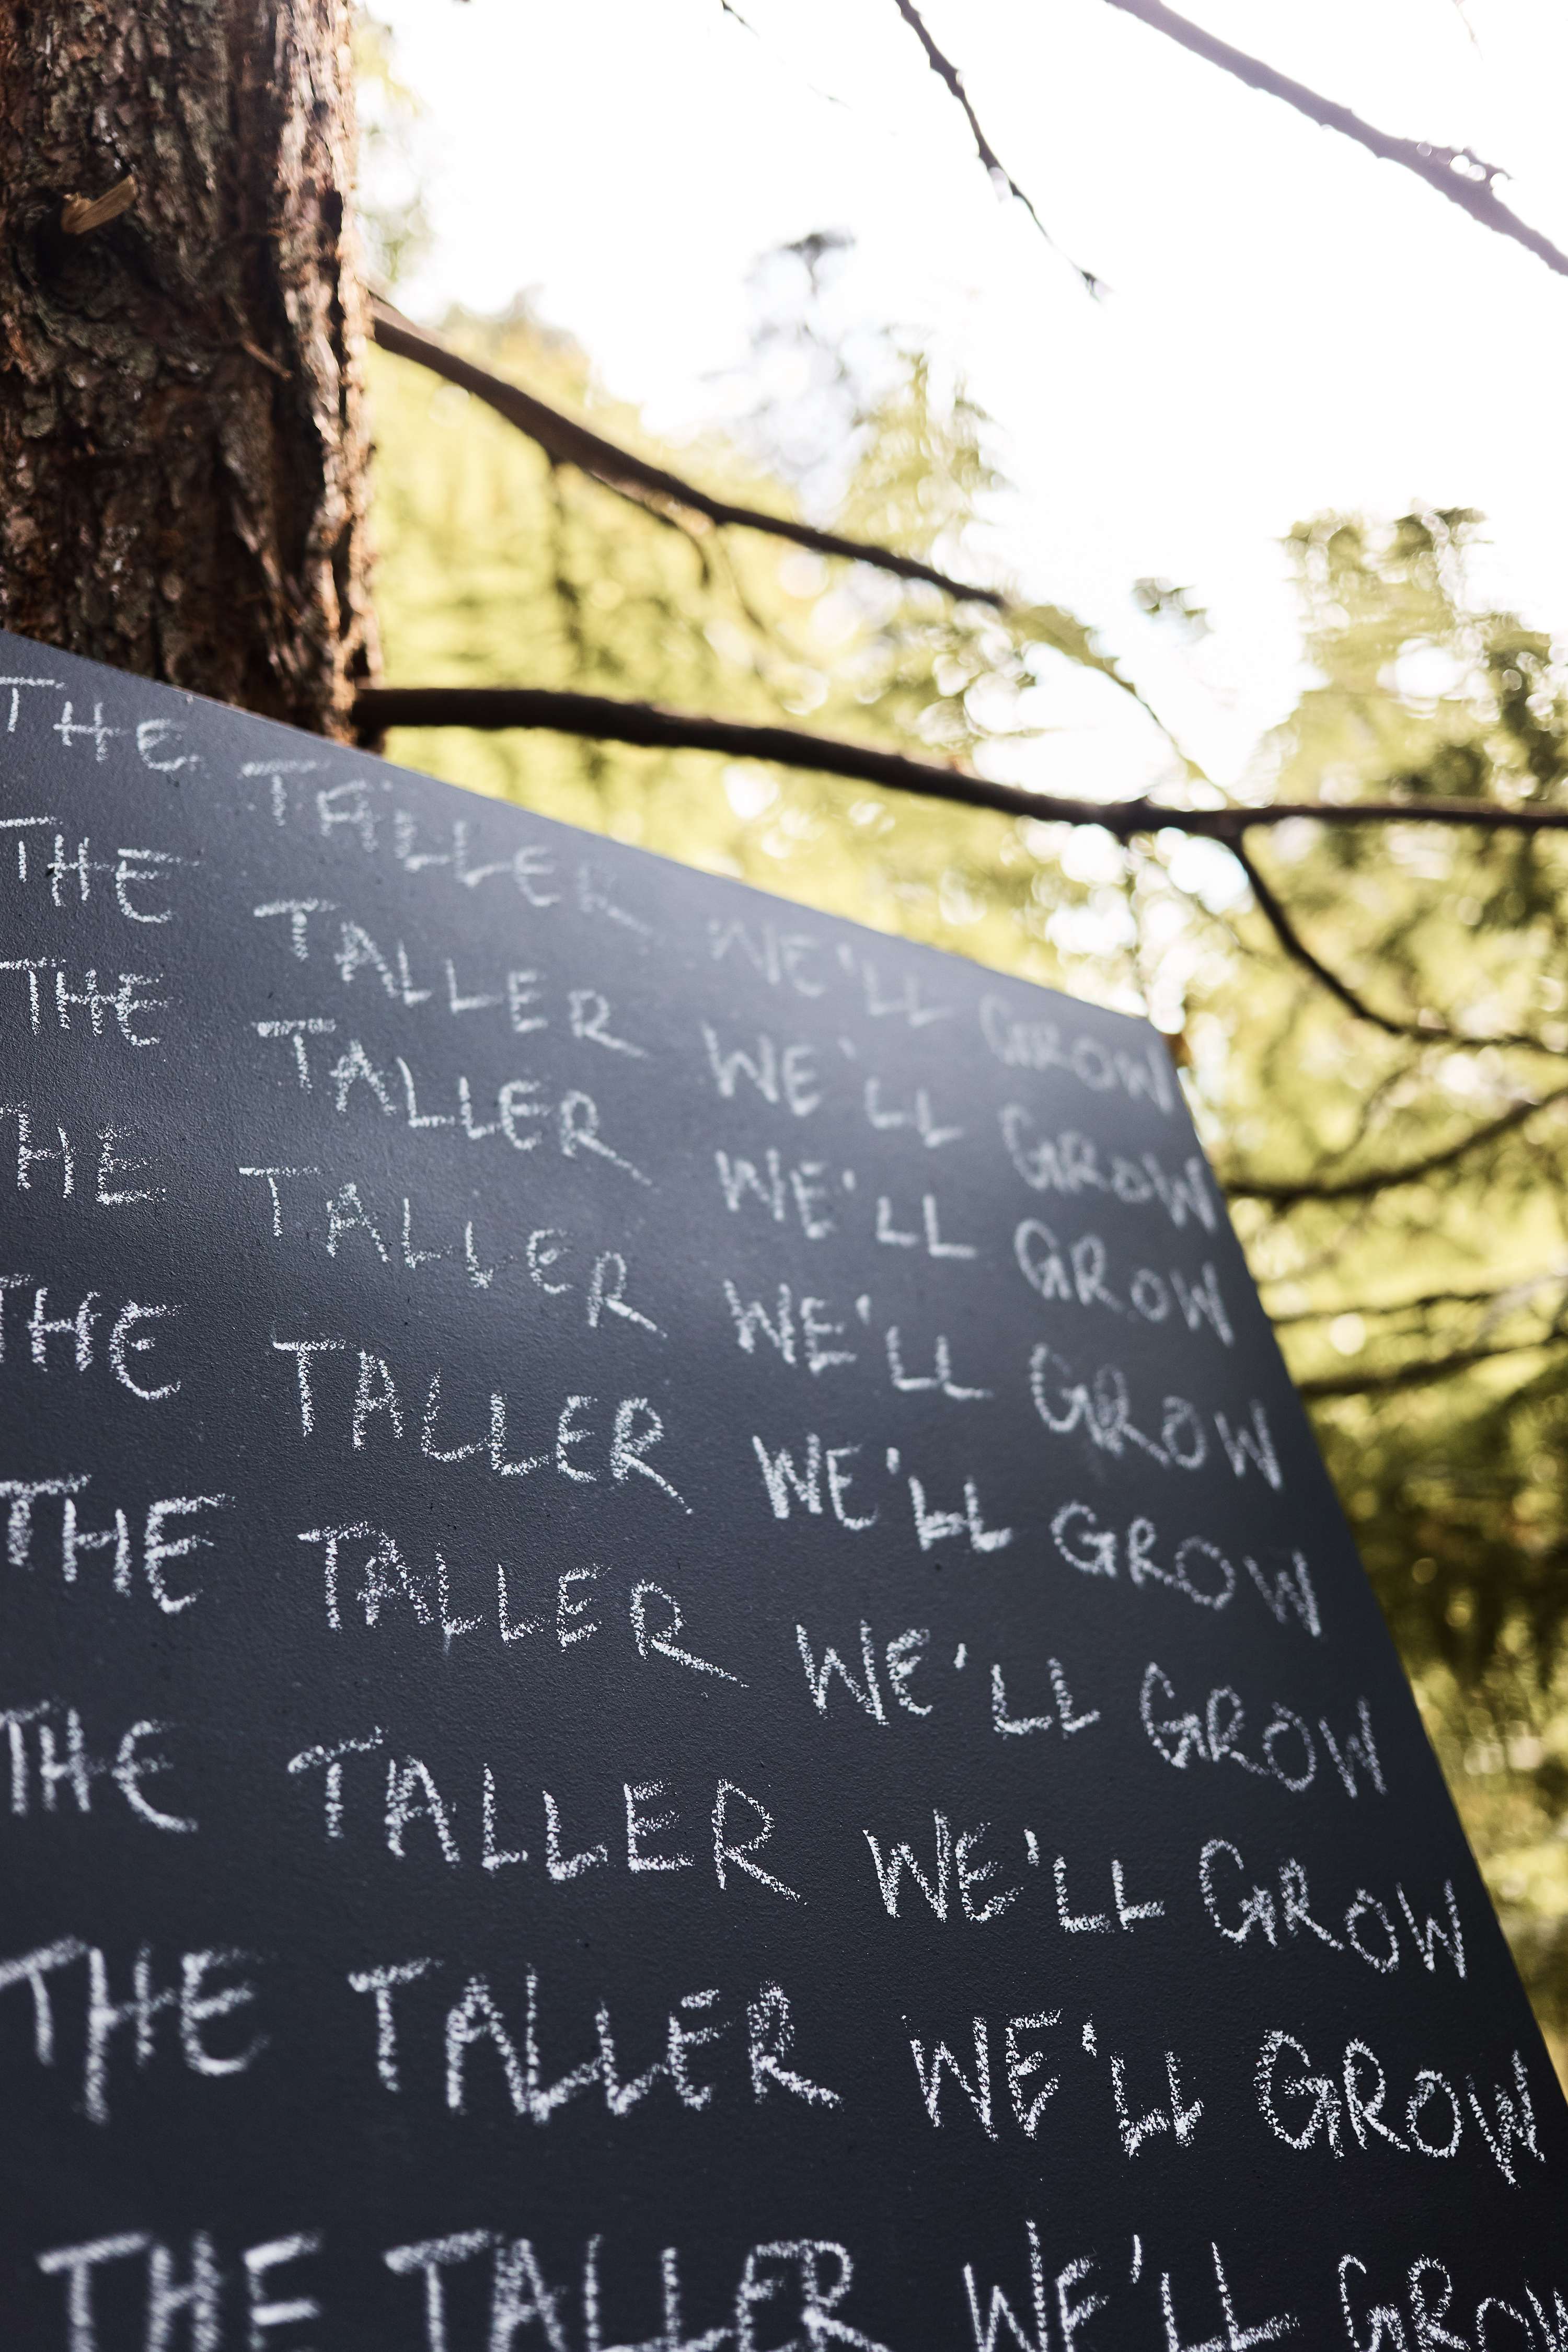 THE TALLER WE'LL GROW
THE TALLER WE'LL GROW
THE TALLER WE'LL GROW
THE TALLER WE'LL GROW
THE TALLER WE'LL GROW
THE TALLER WE'LL GROW
THE TALLER WE'LL GROW
THE TALLER WE'LL GROW
THE TALLER WE'LL GROW